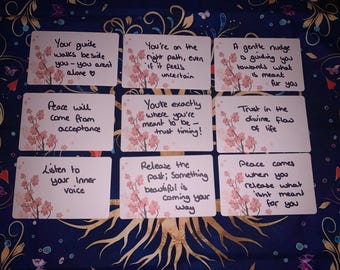 Your guide
walks beside
you - you arent
alone ♡
You're on the
right path, even
if it feels
uncertain
A gentle nudge
is guiding you
towards what
is meant
for you
Peace will
come from
acceptance
You're exactly
where you're
meant to be -
trust timing!
Trust in the
divine flow
of life
Listen to
your inner
voice
Release the
past; Something
beautiful is
coming your
way
Peace comes
when you
release what
isn't meant
for you